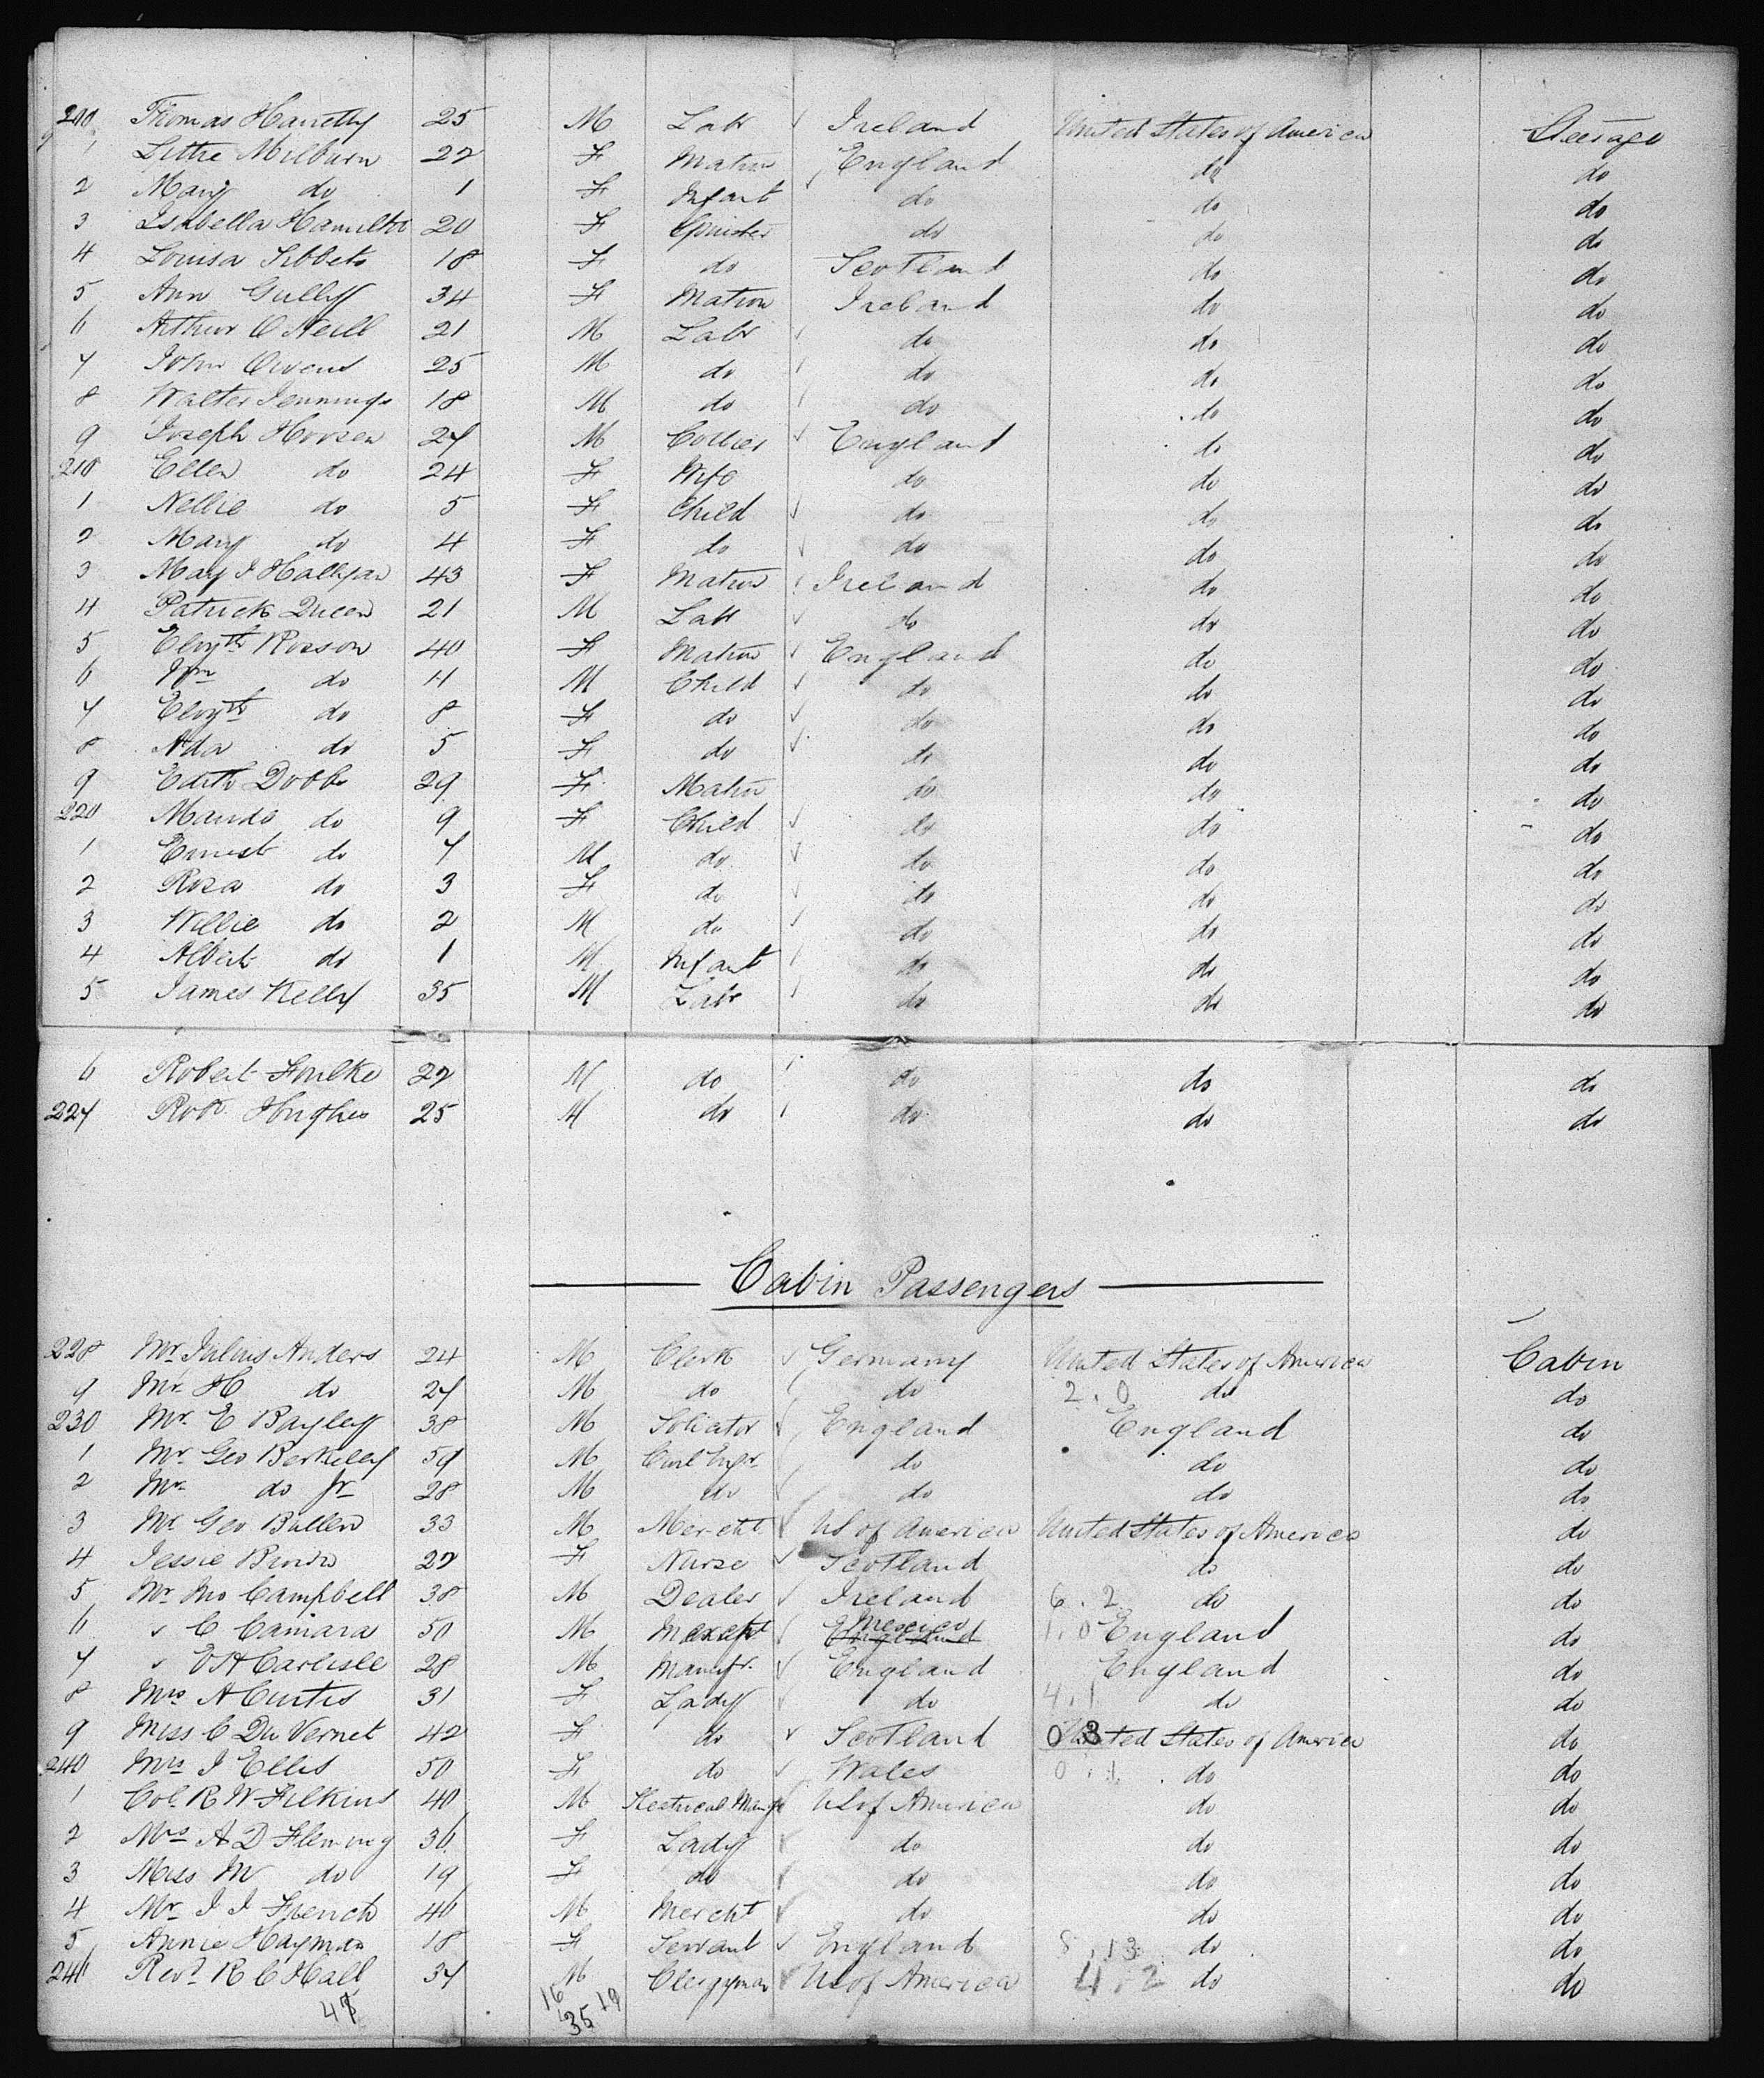 200 Thomas 25 M Labr Ireland United States of America Steerage
1 Milburn 22 F Matron England do do
2 Mary do 1 F Infant do do do
3 Isabella Hamilton 20 F Spinster do do do
4 Louisa Tibbets 18 F do Scotland do do
5 Ann Gully 34 F Matron Ireland do do
6 Arthur O Neill 21 M Labr do do do
7 John Owens 25 M do do do do
8 Walter Jennings 18 M do do do do
9 Joseph 27 M Collier England do do
210 Ellen do 24 F Wife do do do
1 Nellie do 5 F Child do do do
2 Mary do 4 F do do do do
3 Mary J 43 F Matron Ireland do do
4 Patrick Queen 21 M Labr do do do
5 Elizth Rosson 40 F Matron England do do
6 Wm do 11 M Child do do do
7 Elizth do 8 F do do do do
8 Ada do 5 F do do do do
9 Edith Dobbs 29 F Matron do do do
220 Maude do 9 F Child do do do
1 Ernest do 7 M do do do do
2 Rosa do 3 F do do do do
3 Willie do 2 M do do do do
4 Albert do 1 M Infant do do do
5 James Kelly 35 M Labr do do do
6 Robert Foulke 22 M do do do do
227 Robt Hughes 25 M do do do do
Cabin Passengers
228 Mr Julius Anders 24 M Clerk Germany United States of America Cabin
9 Mr H do 27 M do do 2.0 do do
230 Mr E Bayley 38 M Solicitor England England do
1 Mr Geo Berkeley 59 M Civil Engr do do do
2 Mr do Jr 28 M do do do do
3 Mr Geo Bullen 33 M Mercht US of America United States of America do
4 Jessie Brown 22 F Nurse Scotland do do
5 Mr Jno Campbell 38 M Dealer Ireland 6.2 do do
6 " C Camara 50 M Mercht Mexico England 1.0 England do
7 " E H Carlisle 28 M Manufr. England England do
8 Mrs A Curtis 31 F Lady do 4.1 do do
9 Miss C Du Vernet 42 F do Scotland 03 United States of America do
240 Mrs J Ellis 50 F do Wales do do
1 Col. R W Filkins 40 M US of America do do
2 Mrs A D Fleming 36 F Lady do do do
3 Miss M do 19 F do do do do
4 Mr J J French 46 M Mercht do do do
5 Annie Hayman 18 F Servant England 8.13 do do
246 Revd R C Hall 37 M Clergyman US of America 4.2 do do
16 19
35